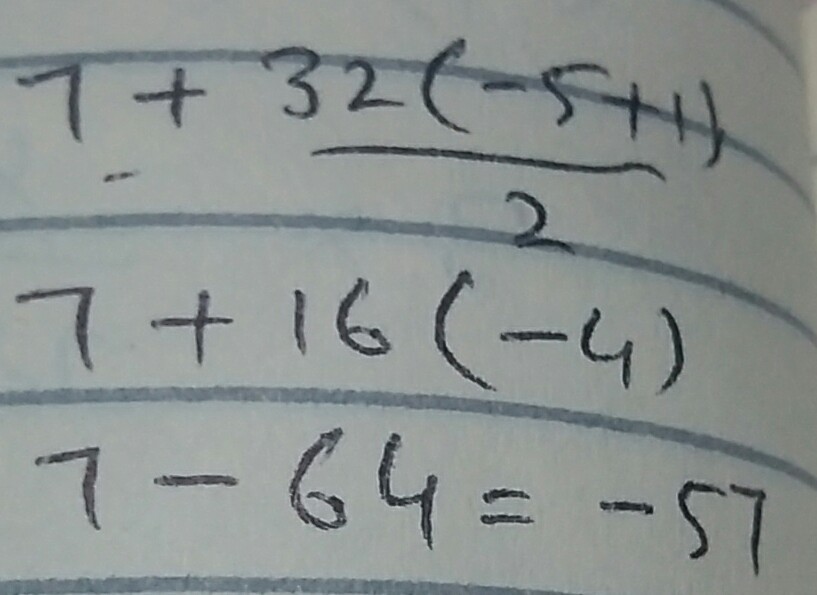 7 + 32(-5+1)
2
7 + 16(-4)
7 - 64 = -57